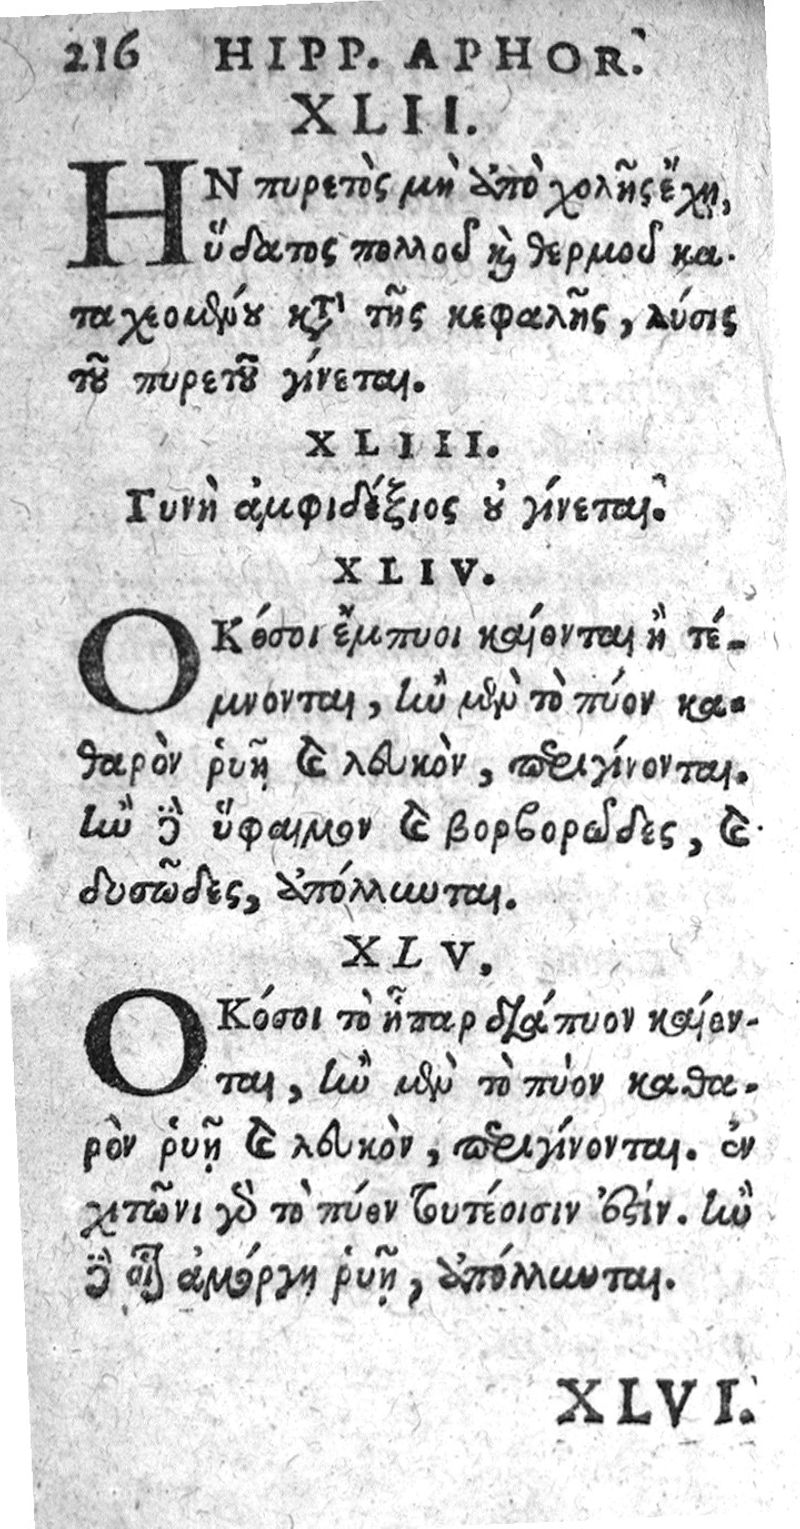 216 HIPP. APHOR.
XLII.
ΗΝ πυρετὸς μὴ ἀπὸ χολῆς ἔχῃ,
ὕδατος πολλοῦ καὶ θερμοῦ κα-
ταχεομένου κατὰ τῆς κεφαλῆς, λύσις
τοῦ πυρετοῦ γίνεται.
XLIII.
Γυνὴ ἀμφιδέξιος οὐ γίνεται.
XLIV.
ΟΚόσοι ἔμπυοι καίονται ἢ τέ-
μνονται, ἢν μὲν τὸ πύον κα-
θαρὸν ῥυῇ καὶ λευκὸν, περιγίνονται.
ἢν δὲ ὕφαιμον καὶ βορβορῶδες, καὶ
δυσῶδες, ἀπόλλυνται.
XLV.
ΟΚόσοι τὸ ἧπαρ διάπυον καίον-
ται, ἢν μὲν τὸ πύον καθα-
ρὸν ῥυῇ καὶ λευκὸν, περιγίνονται. ἐν
χιτῶνι γὰρ τὸ πύον τουτέοισιν ἐστίν. ἢν
δὲ οἷον ἀμόργη ῥυῇ, ἀπόλλυνται.
XLVI.